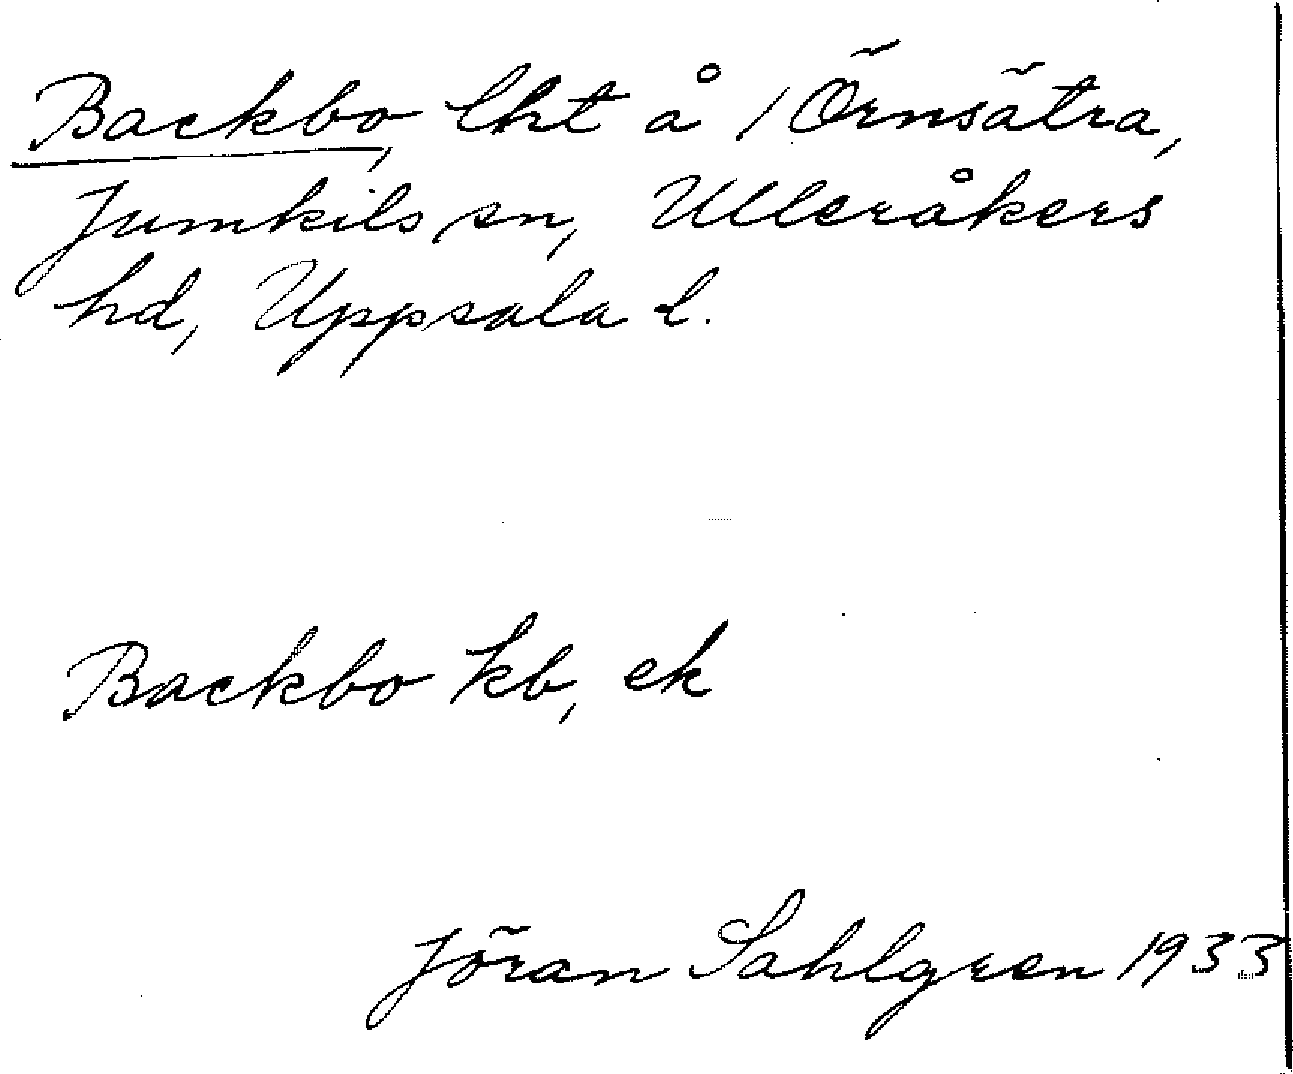 Backbo, lht å / Örnsätra,
Jumkils sn, Ulleråkers
hd, Uppsala l.
Backbo kb, ek
Jöran Sahlgren 1933